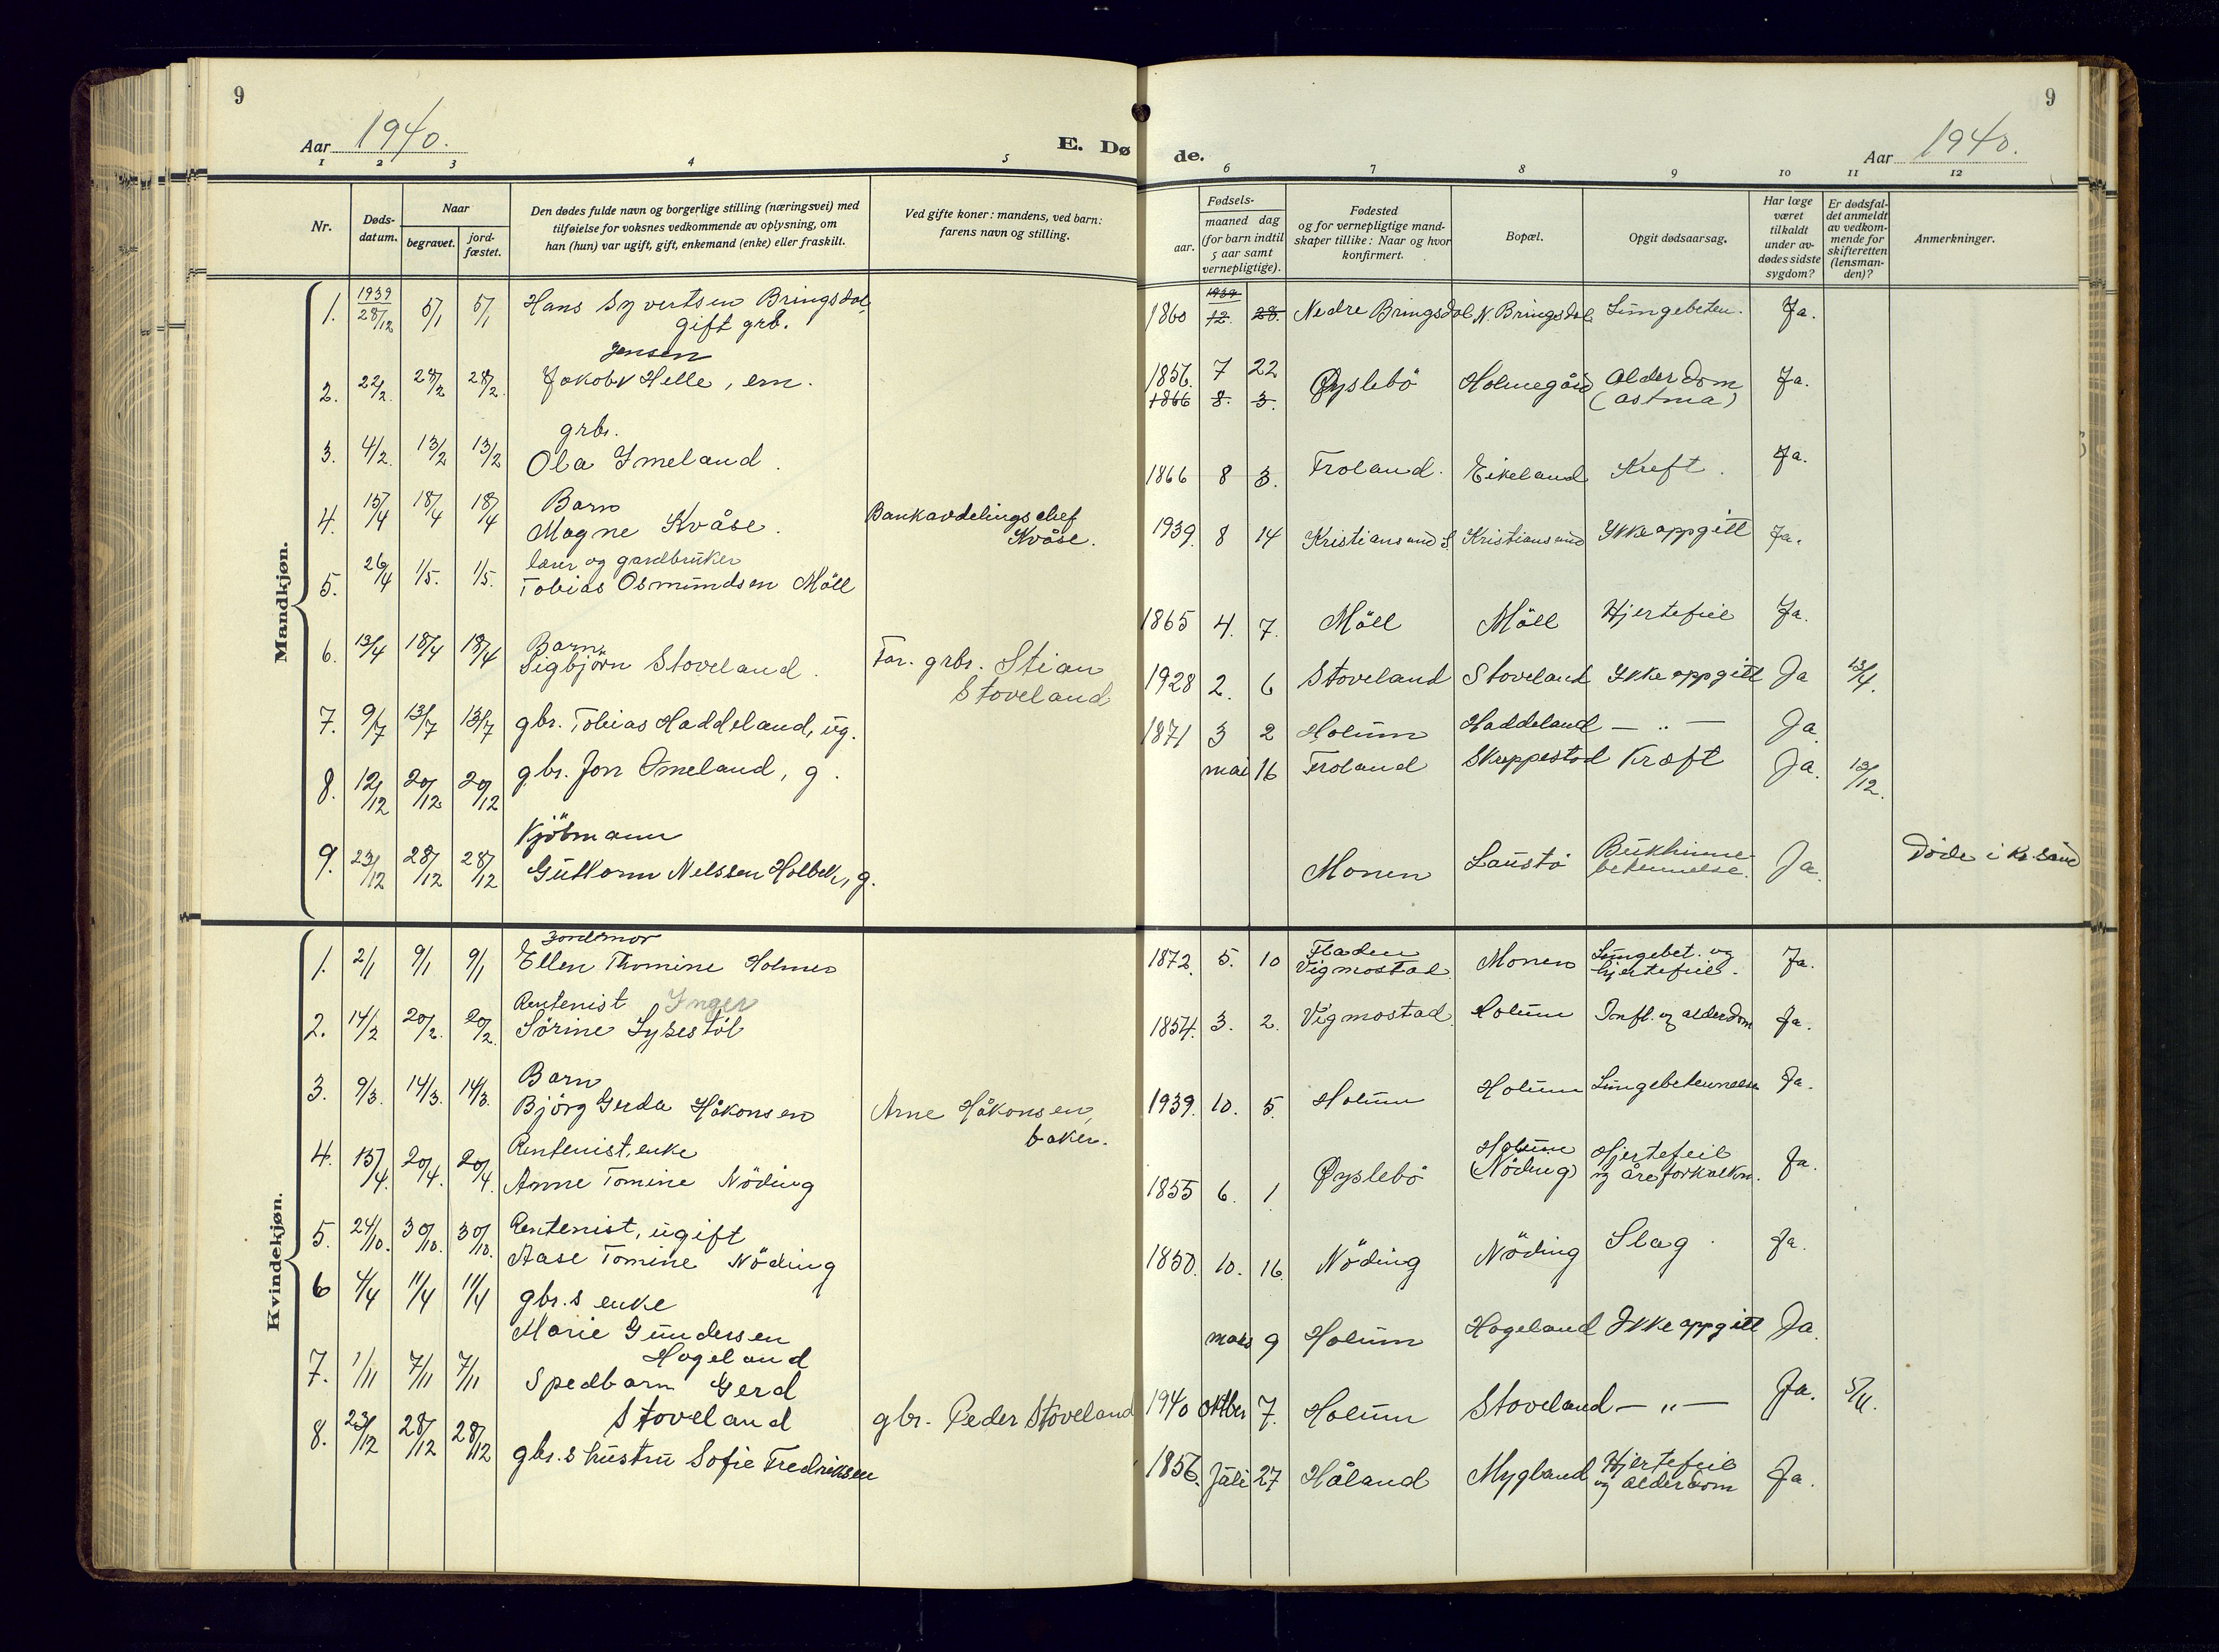 9
9
Aar 1940.
E. Dø
de.
Aar 1940.
1 2 3 4 5 6 7 8 9 10 11 12
Nr.
Døds-
datum.
Naar
begravet.
jord-
fæstet.
Den dødes fulde navn og borgerlige stilling (næringsvei) med
tilføielse for voksnes vedkommende av oplysning, om
han (hun) var ugift, gift, enkemand (enke) eller fraskilt.
Ved gifte koner: mandens, ved barn:
farens navn og stilling.
Fødsels-
aar.
maaned dag
(for barn indtil
5 aar samt
vernepligtige).
Fødested
og for vernepligtige mand-
skaper tillike: Naar og hvor
konfirmert.
Bopæl.
Opgit dødsaarsag.
Har læge
været
tilkaldt
under av-
dødes sidste
sygdom?
Er dødsfal-
det anmeldt
av vedkom-
mende for
skifteretten
(lensman-
den)?
Anmerkninger.
Mandkjøn.
1. 1939 28/12 5/1 5/1 Hans Syvertsen Bringsdal,
gift grb.
1860 1939 12. 28. Nedre Bringsdal N. Bringsdal Lungebeten. Ja.
Jensen
2. 22/2. 28/2 28/2. Jakob Helle, em.
1856. 7 22 Øyslebö Holmegård Alderdom Ja.
1866 8. 3. (astma)
grbr.
3. 4/2. 13/2 13/2 Ola Ømeland.
1866 8 3. Troland. Eikeland Kreft. Ja.
Barn
4. 15/4 18/4 18/4 Magne Kvåse. Bankavdelingschef
Kvåse.
1939. 8 14 Kristiansund S. Kristiansund Ikke oppgitt Ja.
lærer og gardbruker
5. 26/4 1/5. 1/5. Tobias Osmundsen Möll
1865 4. 7. Möll Möll Hjertefeil Ja.
Barn.
6. 13/4 18/4 18/4 Sigbjörn Stoveland. Far. grbr. Stian
Stoveland
1928 2. 6 Stoveland Stoveland Ikke oppgitt Ja 13/4.
7. 9/7 13/7 13/7 gbr. Tobias Haddeland, ug.
1871 3 2 Holum Haddeland — „ — Ja
8. 12/12 20/12 20/12 gbr. Jon Ømeland, g.
mai 16 Troland Skuppestad Kræft Ja. 12/12.
Kjöbmann
9. 23/12 28/12 28/12 Guttorm Nelssen Holbek, g.
Monen Laustö Bukhinne- Ja. Døde i Kr.sand
betennelse.
Kvindekjøn.
Jordmor
1. 2/1 9/1 9/1 Ellen Thomine Holmen
1872. 5. 10 Fladen Monen Lungebet. og Ja.
Vigmostad hjertefeil.
Rentenist Inger
2. 14/2 20/2. 20/2. Sörine Lysestöl
1854. 3. 2. Vigmostad Holum Infl. og alderdom Ja.
Barn
3. 9/3. 14/3. 14/3. Björg Gerda Håkonsen Arne Håkonsen,
baker.
1939. 10. 5. Holum Holum Lungebetennelse Ja.
Rentenist, enke
4. 15/4. 20/4. 20/4. Anne Tomine Nöding
1855 6. 1 Øyslebö Holum Hjertefeil Ja.
(Nöding) og åreforkalkn.
Rentenist, ugift
5. 24/10. 30/10. 30/10. Aase Tomine Nöding
1850. 10. 16. Nöding Nöding Slag. Ja.
6 4/4 11/4 11/4 gbr.s enke
Marie Gundersen
Hageland
mars 9 Holum Hageland Ikke oppgitt Ja.
7. 1/11 7/11 7/11 Spedbarn Gerd
Stoveland gbr. Peder Stoveland
1940 oktber 7. Holum Stoveland — „ — Ja. 5/11.
8. 23/12 28/12 28/12 gbr.s hustru Sofie Fredriksen
1856. Juli 27 Håland Mygland Hjertefeil Ja.
og alderdom